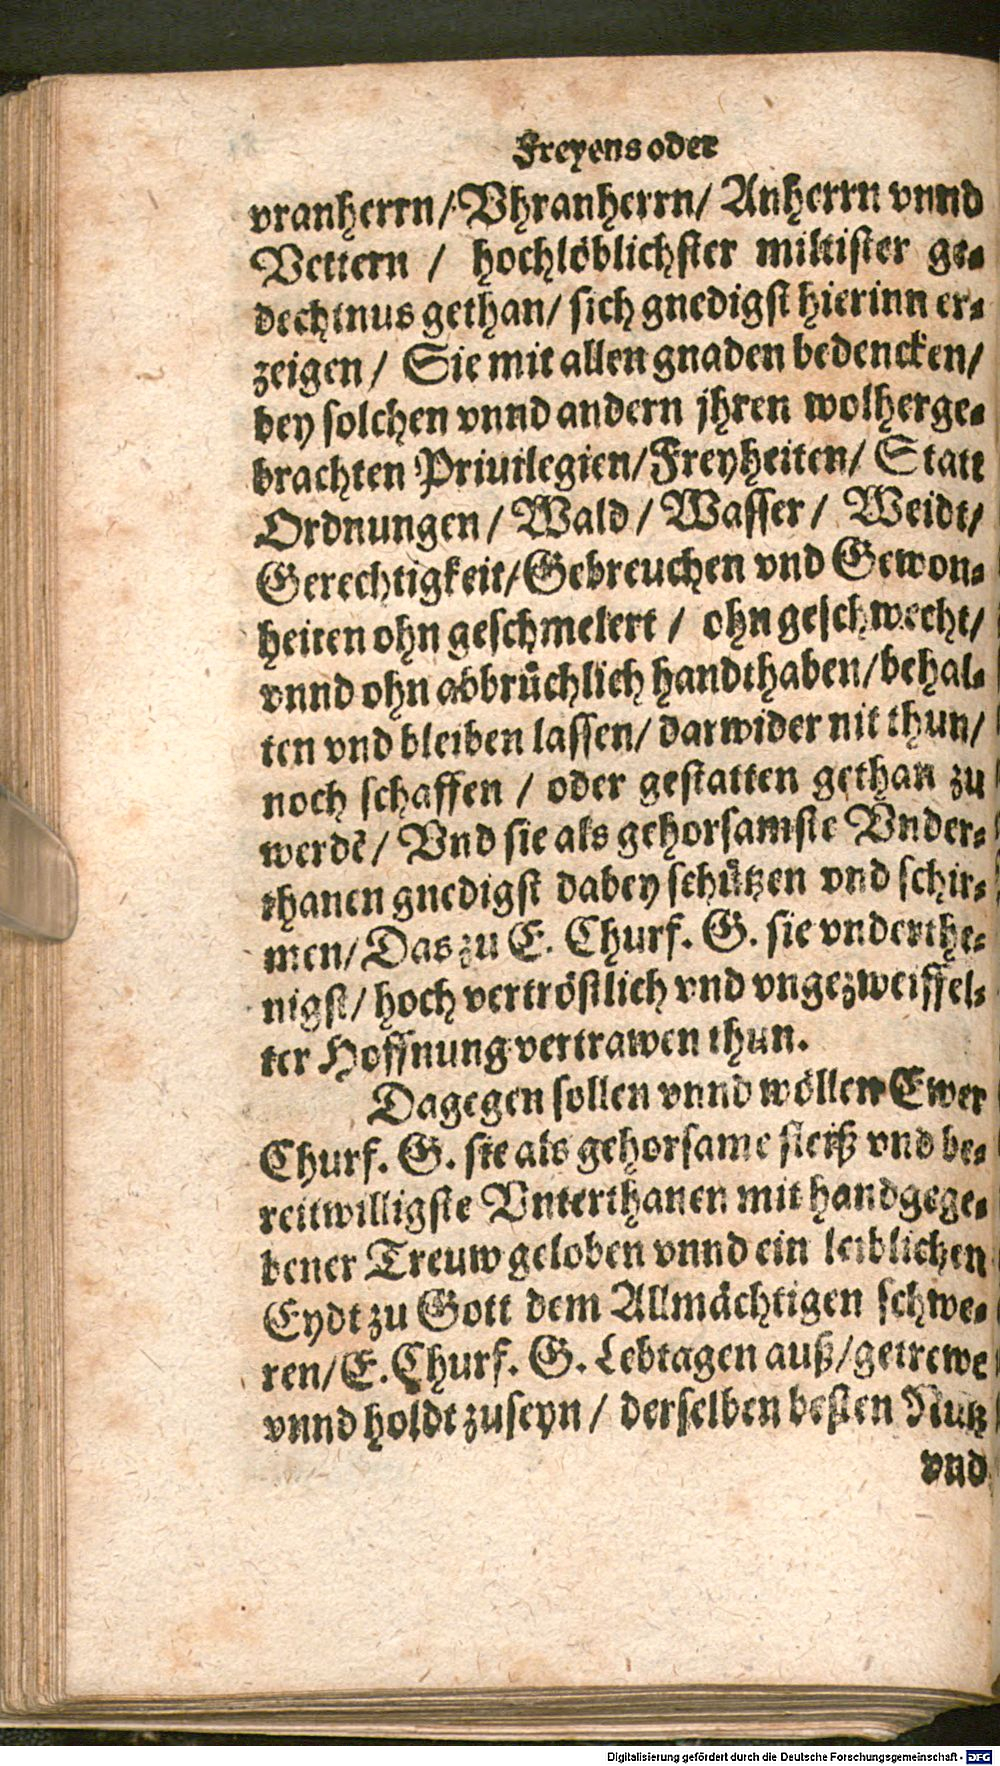 Freyens oder
vranherrn/ Vhranherrn/ Anherrn vnnd
Vettern / hochlöblichster miltister ge-
dechtnus gethan/ sich gnedigst hierinn er-
zeigen / Sie mit allen gnaden bedencken/
bey solchen vnnd andern jhren wolherge-
brachten Priuilegien/Freyheiten/ Statt
Ordnungen / Wald / Wasser / Weidt/
Gerechtigkeit/Gebreuchen vnd Gewon-
heiten ohn geschmelert / ohn geschwecht/
vnnd ohn abbrüchlich handthaben/behal-
ten vnd bleiben lassen/ darwider nit thun/
noch schaffen / oder gestatten gethan zu
werdẽ/ Vnd sie als gehorsamste Vnder-
thanen gnedigst dabey schützen vnd schir-
men/ Das zu E. Churf. G. sie vnderthe-
nigst/ hoch vertröstlich vnd vngezweiffel-
ter Hoffnung vertrawen thun.
Dagegen sollen vnnd wöllen Ewer
Churf. G. sie als gehorsame fleiß vnd be-
reitwilligste Vnterthanen mit handgege-
bener Treuw geloben vnnd ein leiblichen
Eydt zu Gott dem Allmächtigen schwe-
ren/ E. Churf. G. Lebtagen auß/ getrewe
vnnd holdt zuseyn / derselben besten Nutz
vnd
Digitalisierung gefördert durch die Deutsche Forschungsgemeinschaft - DFG